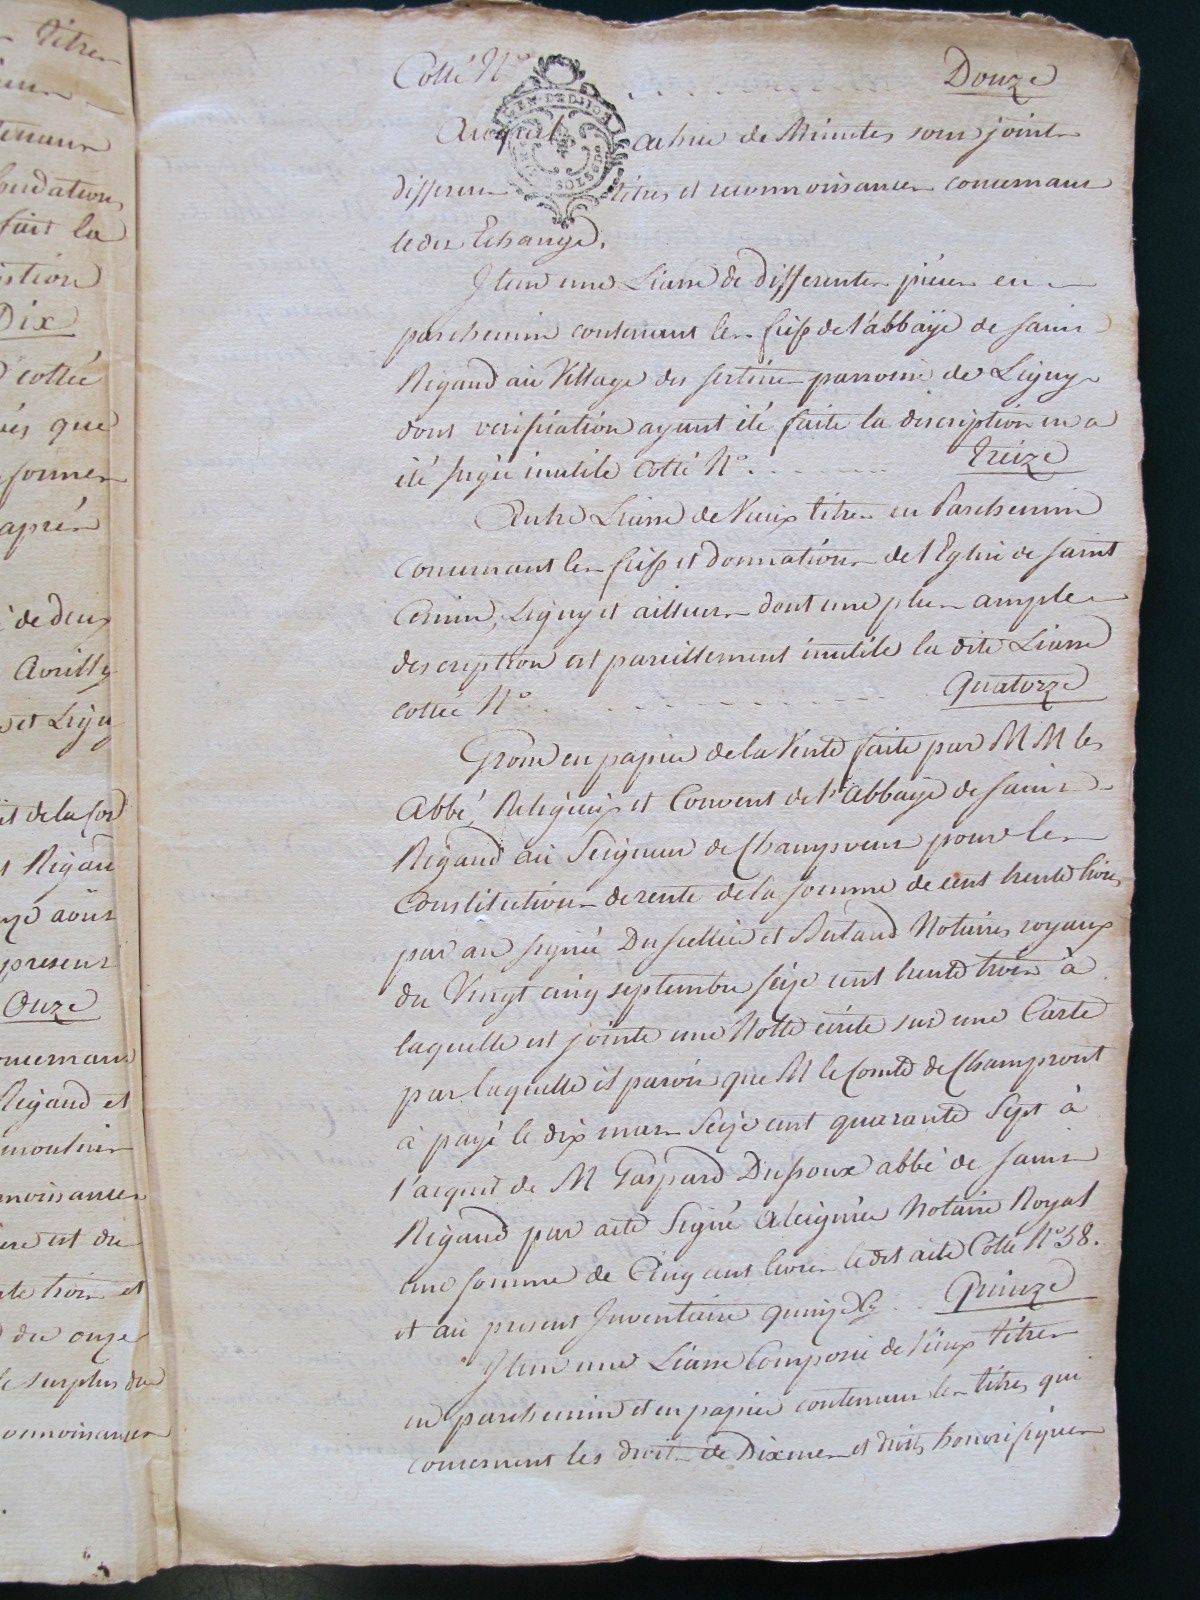 Cotté N° Douze
Auquel cahier de Minutes sont joint
differens titres et reconnoissances concernant
ledit Echange.
Item une Liasse de differentes piéces en
parchemin contenant les fiefs de l'abbaÿe de saint
Rigaud au Village des sertines parroisse de Ligny
dont verification ayant été faite la discription en a
été jugée inutile Cotté N° Treize
Autre Liasse de Vieux titres en Parchemin
concernant les fiefs et donnations de l'Eglise de saint
Cernin, Ligny et ailleurs dont une plus ample
description est pareillement inutile la dite Liasse
cottée N° Quatorze
Grosse en papier de la Vente faite par M M les
Abbé, Religieux et Couvent de l'Abbaye de saint
Rigaud au Seigneur de Champrent pour les
Constitution de rente de la somme de cent trente livres
par an signé et Notaires royaux
du Vingt cinq septembre seize cent trente trois à
laquelle est jointe une Notte écrite sur une Carte
par laquelle il paroit que M le Comte de Champront
à payé le dix mars Seize cent quarante Sept à
l'acquit de M Gaspard Dufsoux abbé de saint
Rigaud par acte Signé Notaire Royal
une somme de Cinq cent livres ledit acte Cotté N° 58.
et au present Inventaire quinze Cy Quinze
Item une Liasse Composée de Vieux titres
en parchemin et en papier contenant les titres qui
concernent les droits de Dixmes et droits honorifiques
titres
fait la
Dix
cottée
que
former
aprés
de deux
Avrilly
et Ligny
Rigaud
aout
present
Onze
Rigaud et
est du
trois et
du onze
le surplus du